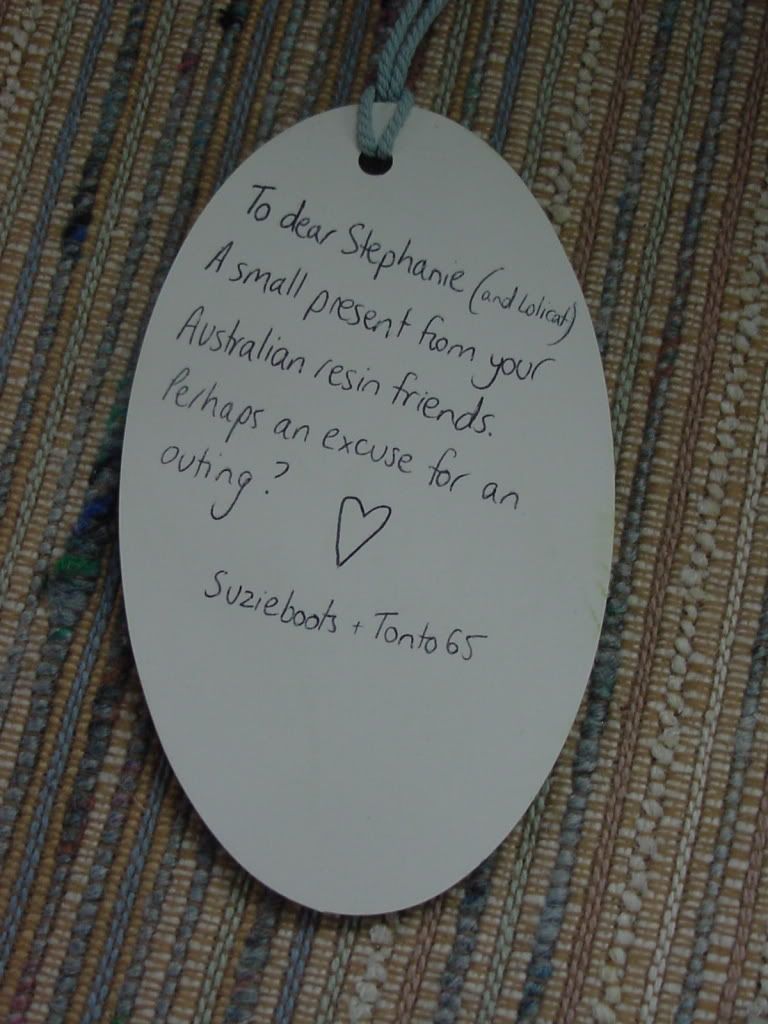 To dear Stephanie (and Lolicat)
A small present from your
Australian resin friends.
Perhaps an excuse for an
outing?
Suzieboots + Tonto65